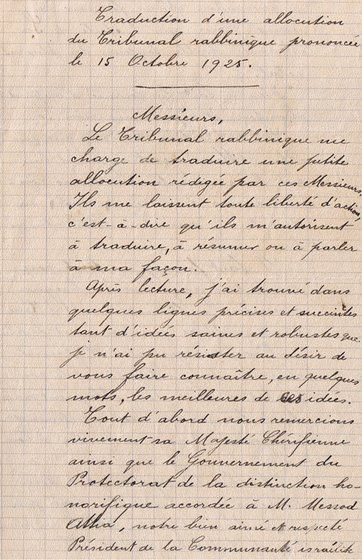 Traduction d'une allocution
du Tribunal rabbinique prononcée
le 15 Octobre 1925.
Messieurs,
Le Tribunal rabbinique me
charge de traduire une petite
allocution rédigée par ces Messieurs,
Ils me laissent toute liberté d'action
c'est-à-dire qu'ils m'autorisent
à traduire, à résumer ou à parler
à ma façon.
Après lecture, j'ai trouvé dans
quelques lignes précises et succintes
tant d'idées saines et robustes que
je n'ai pu résister au désir de
vous faire connaître, en quelques
mots, les meilleures de ces idées.
Tout d'abord nous remercions
vivement sa Majesté Chérifienne
ainsi que le Gouvernement du
Protectorat de la distinction ho-
norifique accordée à M. Messod
Attia, notre bien aimé et respecté
Président de la Communauté israélite